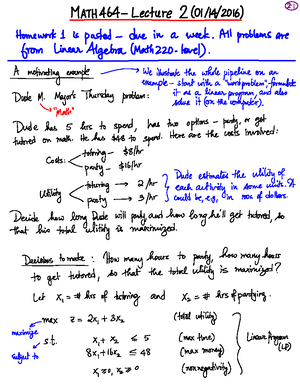 MATH 464 - Lecture 2 (01/14/2016)
2-1
Homework 1 is posted - due in a week. All problems are
from Linear Algebra (Math 220-level).
A motivating example
We illustrate the whole pipeline on an
example - start with a "word problem", formulate
it as a linear program, and also
solve it (on the computer).
Dude M. Major's Thursday problem:
"Math"
Dude has 5 hrs to spend, has two options - party, or get
tutored on math. He has $48 to spend. Here are the costs involved:
Costs: tutoring - $8/hr
party - $16/hr
Utility tutoring → 2/hr
party → 3/hr
Dude estimates the utility of
each activity in some units. It
could be, e.g., in 100s of dollars.
Decide how long Dude will party and how long he'll get tutored, so
that his total utility is maximized.
Decisions to make: How many hours to party, how many hours
to get tutored, so that the total utility is maximized?
Let x₁ = # hrs of tutoring and x₂ = # hrs of partying.
maximize
max z = 2x₁ + 3x₂ (total utility)
s.t. x₁ + x₂ ≤ 5 (max time)
subject to
8x₁ + 16x₂ ≤ 48 (max money)
x₁ ≥ 0, x₂ ≥ 0 (nonnegativity)
Linear Program
(LP)